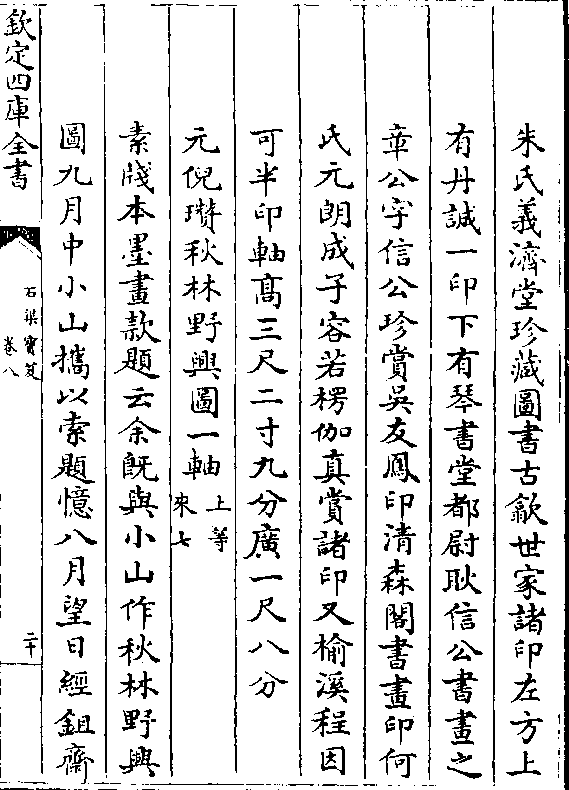 朱氏義濟堂珍藏圖書古歙世家諸印左方上
有丹誠一印下有琴書堂都尉耿信公書畫之
章公字信公珍賞吳友鳳印清森閣書畫印何
氏元朗成子容若楞伽真賞諸印又榆溪程因
可半印軸髙三尺二寸九分廣一尺八分
元倪瓚秋林野興圖一軸上等
來七
素牋本墨畫款題云余旣與小山作秋林野興
圖九月中小山攜以索題憶八月望日經鉏齋
欽定四庫全書
石渠寶笈
卷八
二十